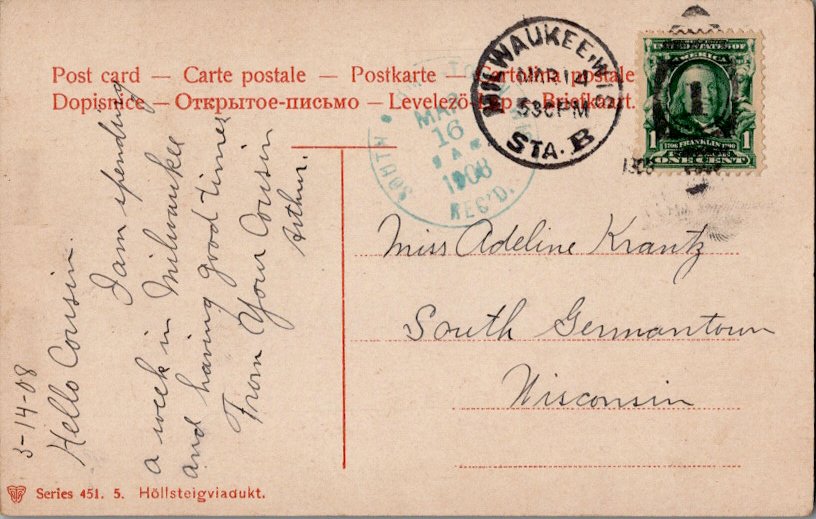 Post card — Carte postale — Postkarte — Cartolina postale
Dopisnice — Открытое-письмо — Levelező — Briefkaart.
MILWAUKEE, WIS.
MAR 14
530 PM
STA. B
1908
SOUTH
MAR
16
1908
REC'D.
UNITED STATES OF AMERICA
1706 FRANKLIN 1790
1 1
ONE CENT
3-14-08
Hello Cousin.
I am spending
a week in Milwaukee
and having good times
From Your Cousin
Arthur.
Miss Adeline Krantz
South Germantown
Wisconsin
Series 451. 5. Höllsteigviadukt.